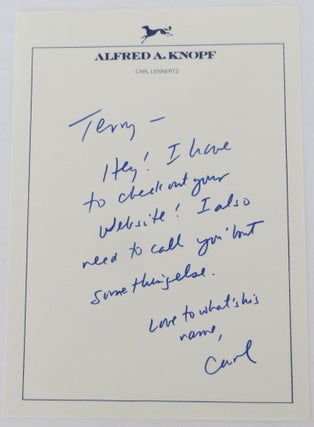 ALFRED A. KNOPF
CARL LENNERTZ
Terry —
Hey! I have
to check out your
website! I also
need to call you 'bout
something else.
Love to what's his
name,
Carl